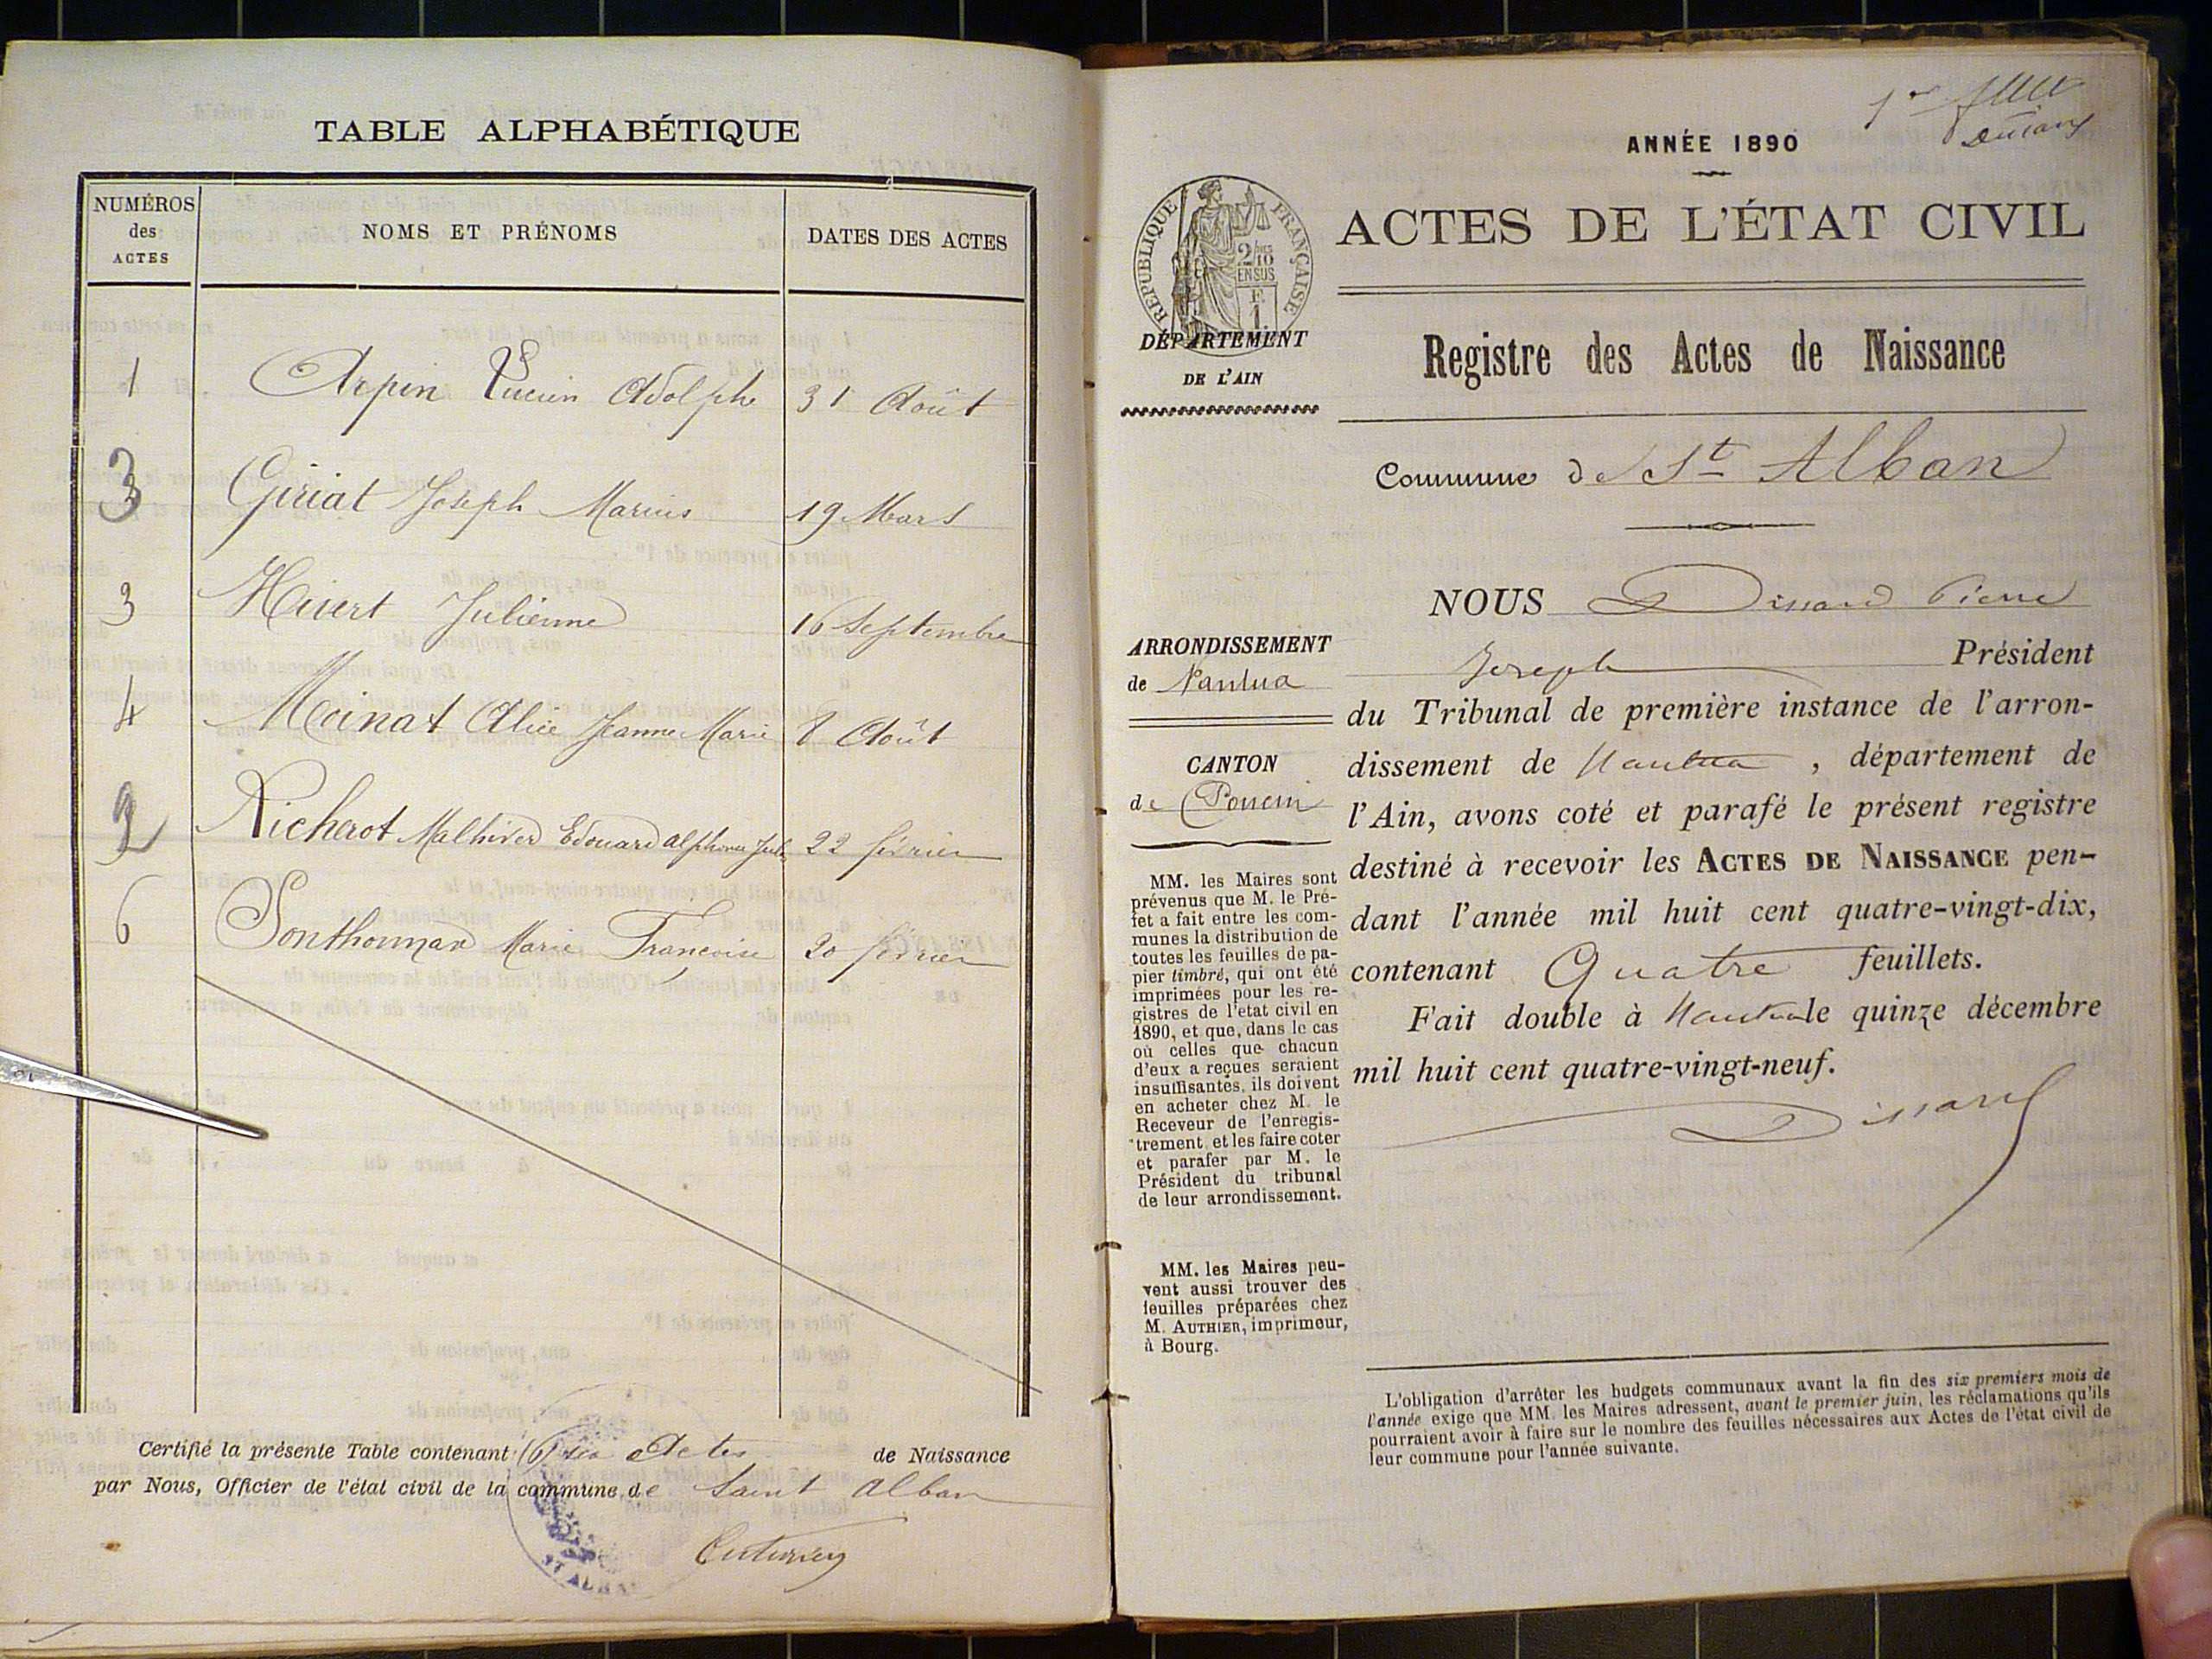 TABLE ALPHABÉTIQUE
NUMÉROS des ACTES
NOMS ET PRÉNOMS
DATES DES ACTES
1 Arpin Lucien Adolphe 31 Août
3 Giriat Joseph Marius 19 Mars
3 Huert Julienne 16 Septembre
4 Moinat Alice Jeanne Marie 8 Août
2 Richerot Malhiver Edouard alphonse 22 février
6 Sonthonnax Marie Francoise 20 février
Certifié la présente Table contenant six Actes de Naissance
par Nous, Officier de l'état civil de la commune de Saint Alban
ST ALBAN
1er
ANNÉE 1890
RÉPUBLIQUE FRANÇAISE
2/10
EN SUS
F.
1
ACTES DE L'ÉTAT CIVIL
DÉPARTEMENT
DE L'AIN
Registre des Actes de Naissance
Commune de St Alban
NOUS Dissard Pierre
Joseph Président
du Tribunal de première instance de l'arron-
dissement de Nantua, département de
l'Ain, avons coté et parafé le présent registre
destiné à recevoir les ACTES DE NAISSANCE pen-
dant l'année mil huit cent quatre-vingt-dix,
contenant Quatre feuillets.
Fait double à Nantua le quinze décembre
mil huit cent quatre-vingt-neuf.
Dissard
ARRONDISSEMENT
de Nantua
CANTON
de Poncin
MM. les Maires sont
prévenus que M. le Pré-
fet a fait entre les com-
munes la distribution de
toutes les feuilles de pa-
pier timbré, qui ont été
imprimées pour les re-
gistres de l'etat civil en
1890, et que, dans le cas
où celles que chacun
d'eux a reçues seraient
insuffisantes, ils doivent
en acheter chez M. le
Receveur de l'enregis-
trement et les faire coter
et parafer par M. le
Président du tribunal
de leur arrondissement.
MM. les Maires peu-
vent aussi trouver des
feuilles préparées chez
M. AUTHIER, imprimeur,
à Bourg.
L'obligation d'arrêter les budgets communaux avant la fin des six premiers mois de
l'année exige que MM. les Maires adressent, avant le premier juin, les réclamations qu'ils
pourraient avoir à faire sur le nombre des feuilles nécessaires aux Actes de l'état civil de
leur commune pour l'année suivante.